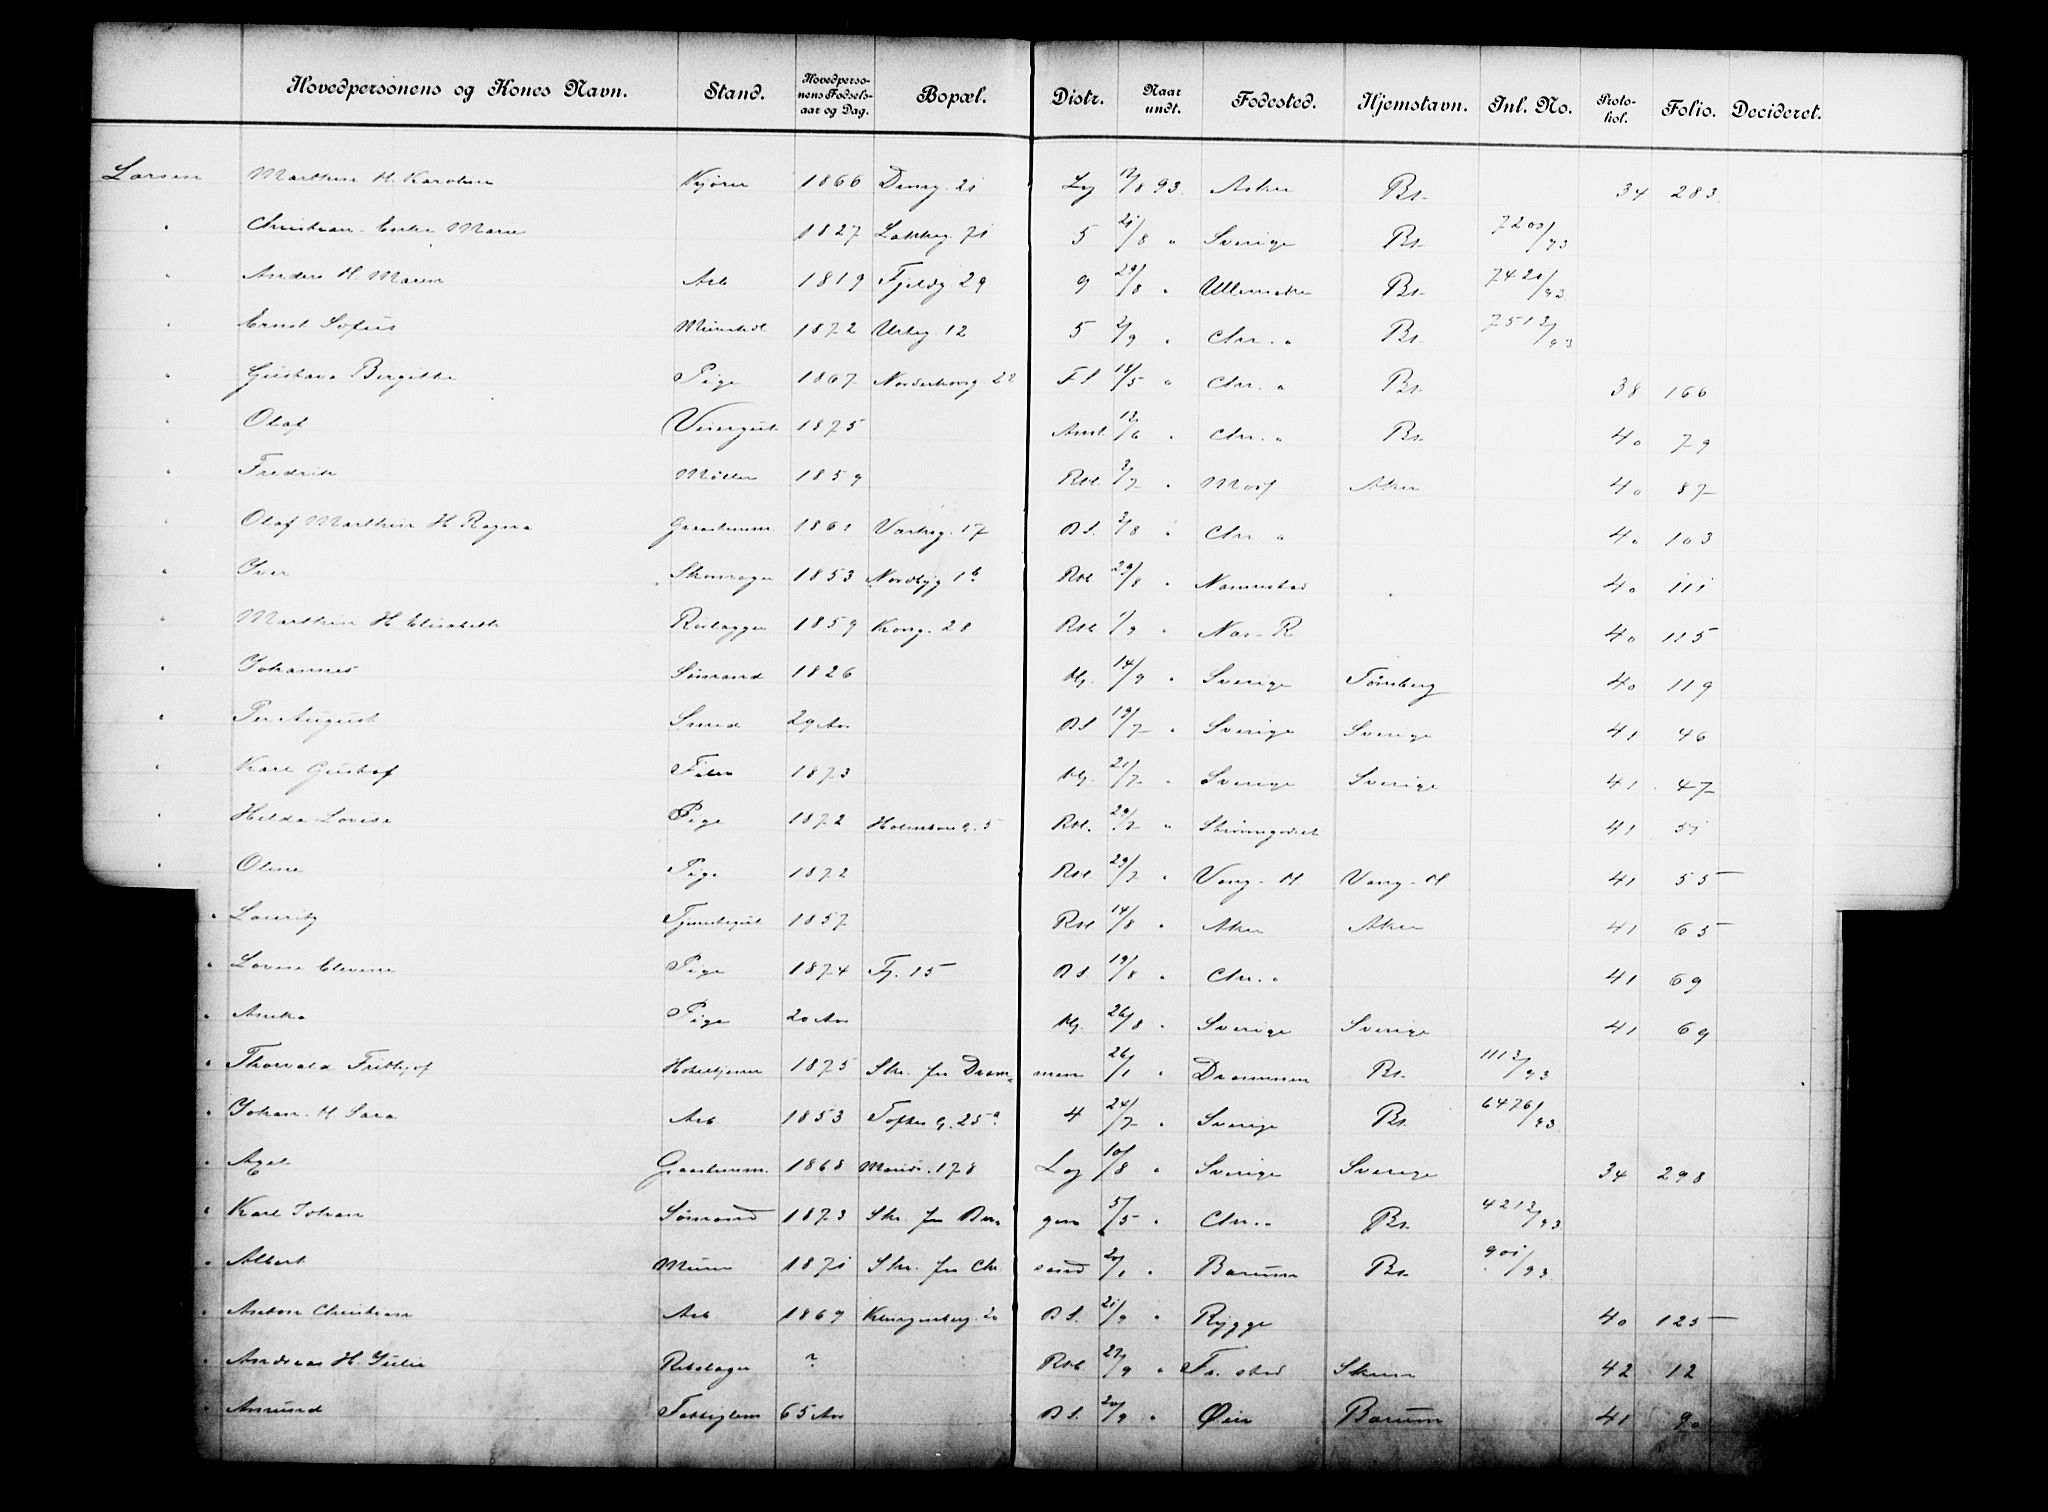 Hovedpersonens og Kones Navn. Stand. Hovedpersonens Fødselsaar og Dag. Bopæl. Distr. Naar undt. Fødested. Hjemstavn. Inl. No. Protokol. Folio. Decideret.
Larsen Marthin H. Karoline Kjører 1866 21 Lg 12/8 93. Asker Bt. 34 283
" Christian - Enke Marie 1827 Lakkeg. 71 5 21/8 " Sverige Bt. 7200/93
" Anders H. Maren Arb 1819 Fjeldg 29 9 29/8 " Ullensaker Bt. 7420/93
" Ernst Sofus 1872 Urteg. 12 5 2/9 " Chr. a Bt. 7512/93
" Gustava Bergitte Pige 1867 Norderhovsg. 22 F.S 18/5 " Chr. a Bt. 38 166
" Olaf Visergut 1875 Anst. 12/6 " Chr. a Bt. 40 79
" Fredrik Møller 1859 Rst. 3/7 " Moss Aker 40 87
" Olaf Marthin H. Ragna Graastensm. 1861 17 B.S. 3/8 " Chr. a 40 103
" Iver Skomager 1853 Nordbyg 16 Rst 29/8 " Nannestad 40 111
" Marthin H. Elisabeth Rørlægger 1859 Kong. 28 Rst 1/9 " Nes - R 40 115
" Johannes Sømand 1826 Mg. 14/9 " Sverige Tønsberg 40 119
" Per August Smed 29 Aar B.S 19/7 " Sverige Sverige 41 46
" Karl Gustaf 1873 Mg. 21/7 " Sverige Sverige 41 47
" Hilda Lovise Pige 1872 Holmboes G. 5 Rst. 29/7 " Strømsgodset 41 51
" Oline Pige 1872 Rst. 29/7 " Vang - H Vang - H 41 55
" Lauritz Tjenestegut 1857 Rst 14/8 " Aker Aker 41 65
" Lovise Elevine Pige 1874 15 B.S. 19/8 " Chr. a 41 69
" Pige 20 Aar Mg. 26/8 " Sverige Sverige 41 69
" Thorvald Frithjof Hoteltjener 1875 Skr. fra Drammen 26/1 " Drammen Bt. 1112/93
" Johan H. Sara Arb 1853 Toftes G. 25a 4 24/7 " Sverige Bt. 6476/93
" Axel Graastensm. 1868 Marids. 178 Lg 10/8 " Sverige Sverige 34 298
" Karl Johan Sømand 1873 Skr. fra Bergen 5/5 " Chr. a Bt. 4212/93
" Albert Murer 1871 Skr. fra Chr sand 20/1 " Bærum Bt. 901/93
" Anton Christian Arb 1869 Klingenberg. 20 B.S. 21/9 " Rygge 40 125
" Andreas H. Julie Rebslager ? Rst. 27/9 " Fr. stad Skien 42 12
" Amund Fattiglem 65 Aar B.S. 20/9 " Øier Bærum 41 90